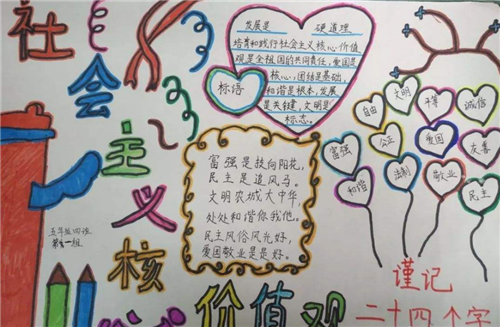 社会主义核心
价值观
标语
发展是 硬道理
培育和践行社会主义核心价值
观是全祖国的共同责任,爱国是
核心,团结是基础,
和谐是根本,发展
是关建,文明是
标态。
富强是扶向阳花,
民主是追风马。
文明农城大中华,
处处和谐你我他。
民主风俗风光好,
爱国敬业是最好。
自由
文明
平等
诚信
富强
公正
爱国
友善
和谐
法制
敬业
民主
五年级四班
第一组
谨记
二十四个字